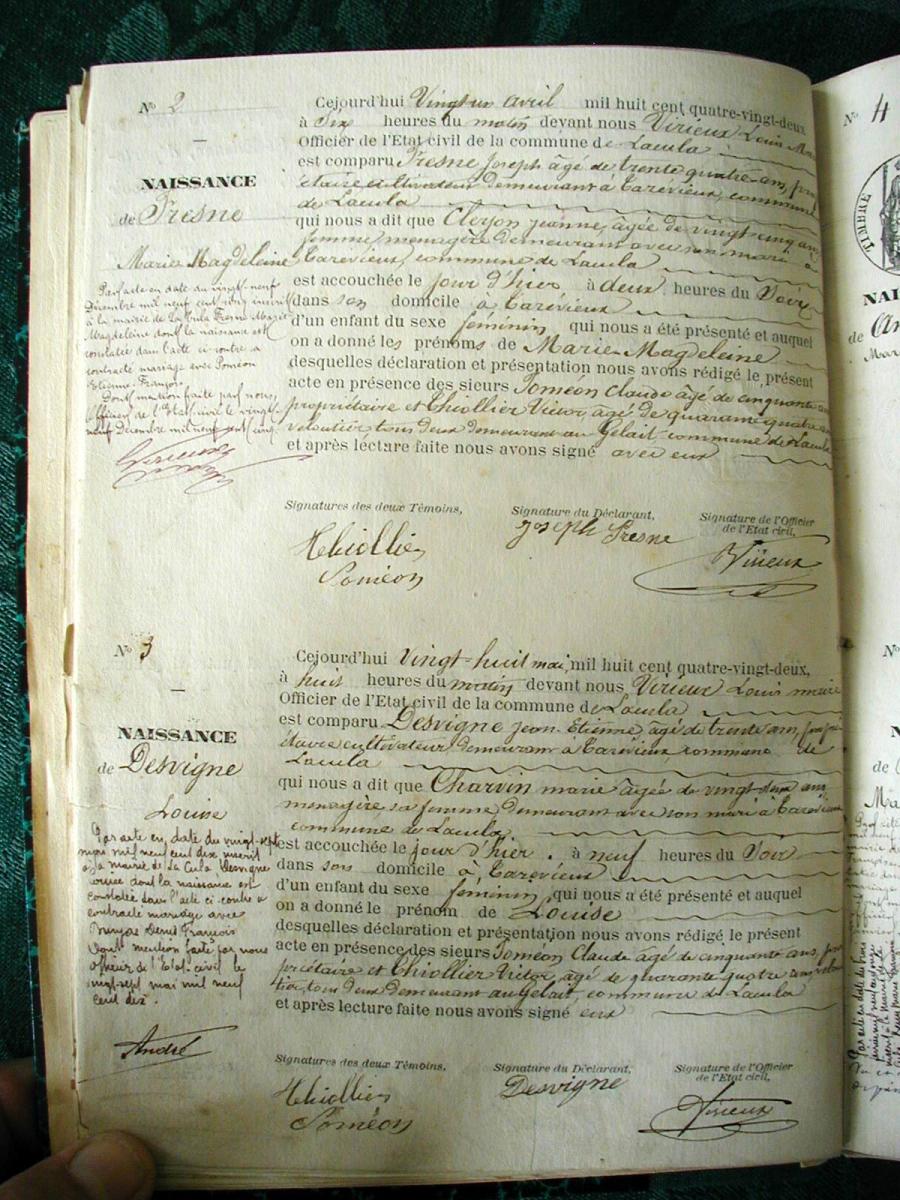 Nº 2
NAISSANCE
de Fresne
Marie Magdeleine
Par acte en date du vingt-neuf
Décembre mil neuf cent cinq inscrit
à la mairie de La Cula Fresne Marie
Magdeleine dont la naissance est
constatée dans l'acte ci-contre a
contracté mariage avec Poméon
Etienne François
Dont mention faite par nous,
officier de l'Etat civil le vingt-
neuf Décembre mil neuf cent cinq
Virieux
Cejourd'hui Vingt un avril mil huit cent quatre-vingt-deux
à Six heures du matin devant nous Virieux Louis
Officier de l'Etat civil de la commune de Lacula
est comparu Fresne Joseph âgé de trente quatre ans, pro
étaire cultivateur demeurant à Carévieux, commune
de Lacula
qui nous a dit que Cleyon jeanne, âgée de vingt cinq ans
femme, menagère demeurant avec son mari à
Carévieux, commune de Lacula
est accouchée le jour d'hier à deux heures du Soir
dans son domicile à Carévieux
d'un enfant du sexe féminin qui nous a été présenté et auquel
on a donné les prénoms de Marie Magdeleine
desquelles déclaration et présentation nous avons rédigé le présent
acte en présence des sieurs Poméon Claude âgé de cinquante ans
propriétaire et Thiollier Victor, âgé de quarante quatre ans
veloutier tous deux demeurant au Gelait commune de Lacula
et après lecture faite nous avons signé avec eux
Signatures des deux Témoins,
Signature du Déclarant,
Signature de l'Officier
de l'Etat civil,
Thiollier
Poméon
Joseph Fresne
Virieux
Nº 3
NAISSANCE
de Desvigne
Louise
Par acte en date du vingt-sept
mai mil neuf cent dix inscrit
à la mairie de La Cula Desvigne
Louise dont la naissance est
constatée dans l'acte ci-contre a
contracté mariage avec
Denis François
Dont mention faite par nous
officier de l'Etat civil le
vingt-sept mai mil neuf
cent dix.
André
Cejourd'hui Vingt-huit mai, mil huit cent quatre-vingt-deux,
à huit heures du matin devant nous Virieux Louis maire
Officier de l'Etat civil de la commune de Lacula
est comparu Desvigne Jean Etienne, âgé de trente ans, propri
étaire cultivateur demeurant à Carévieux, commune de
Lacula
qui nous a dit que Charvin marie âgée de vingt deux ans
menagère sa femme, demeurant avec son mari à Carévieux
commune de Lacula,
est accouchée le jour d'hier. à neuf heures du Soir
dans son domicile à Carévieux
d'un enfant du sexe féminin qui nous a été présenté et auquel
on a donné le prénom de Louise
desquelles déclaration et présentation nous avons rédigé le présent
acte en présence des sieurs Poméon Claude âgé de cinquante ans pro
priétaire et Thiollier Victor, âgé de quarante quatre ans velou
tier, tous deux demeurant au Gelait, commune de Lacula
et après lecture faite nous avons signé eux
Signatures des deux Témoins,
Signature du Déclarant,
Signature de l'Officier
de l'Etat civil,
Thiollier
Poméon
Desvigne
Virieux
Nº 4
TIMBRE
NAI
de
Mar